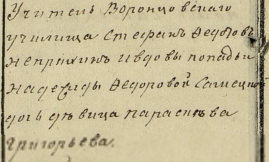 Учитель Воронцовскаго
училища Стефанъ Ѳедоровъ
и вдовы попадьи
Надежды Ѳедоровой
дочь дѣвица Параскева
Григорьева.